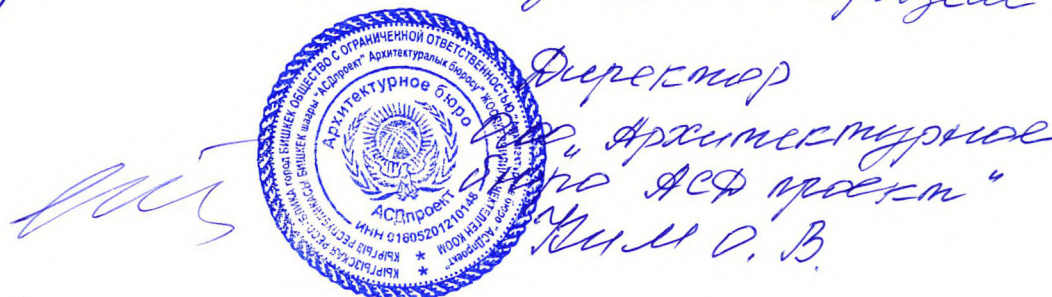 Директор
ОсОО „Архитектурное
бюро АСД проект"
Ким О. В.
КЫРГЫЗСКАЯ РЕСПУБЛИКА город БИШКЕК ОБЩЕСТВО С ОГРАНИЧЕННОЙ ОТВЕТСТВЕННОСТЬЮ
КЫРГЫЗ РЕСПУБЛИКАСЫ БИШКЕК шаары "АСДпроект" Архитектуралык бюросу"
Архитектурное бюро
АСДпроект
ИНН 01605201210148